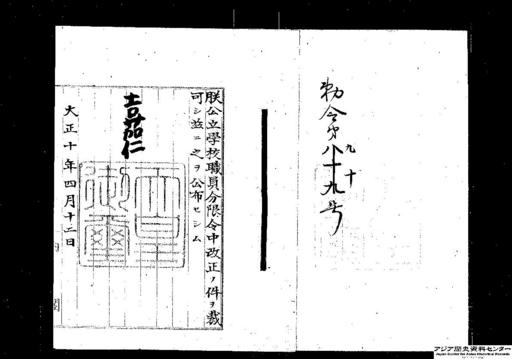 勅令第八十九号
九十
朕公立學校職員分限令中改正ノ件ヲ裁
可シ茲ニ之ヲ公布セシム
嘉仁
天皇
御璽
大正十年四月十二日
内閣
アジア歴史資料センター
Japan Center for Asian Historical Records